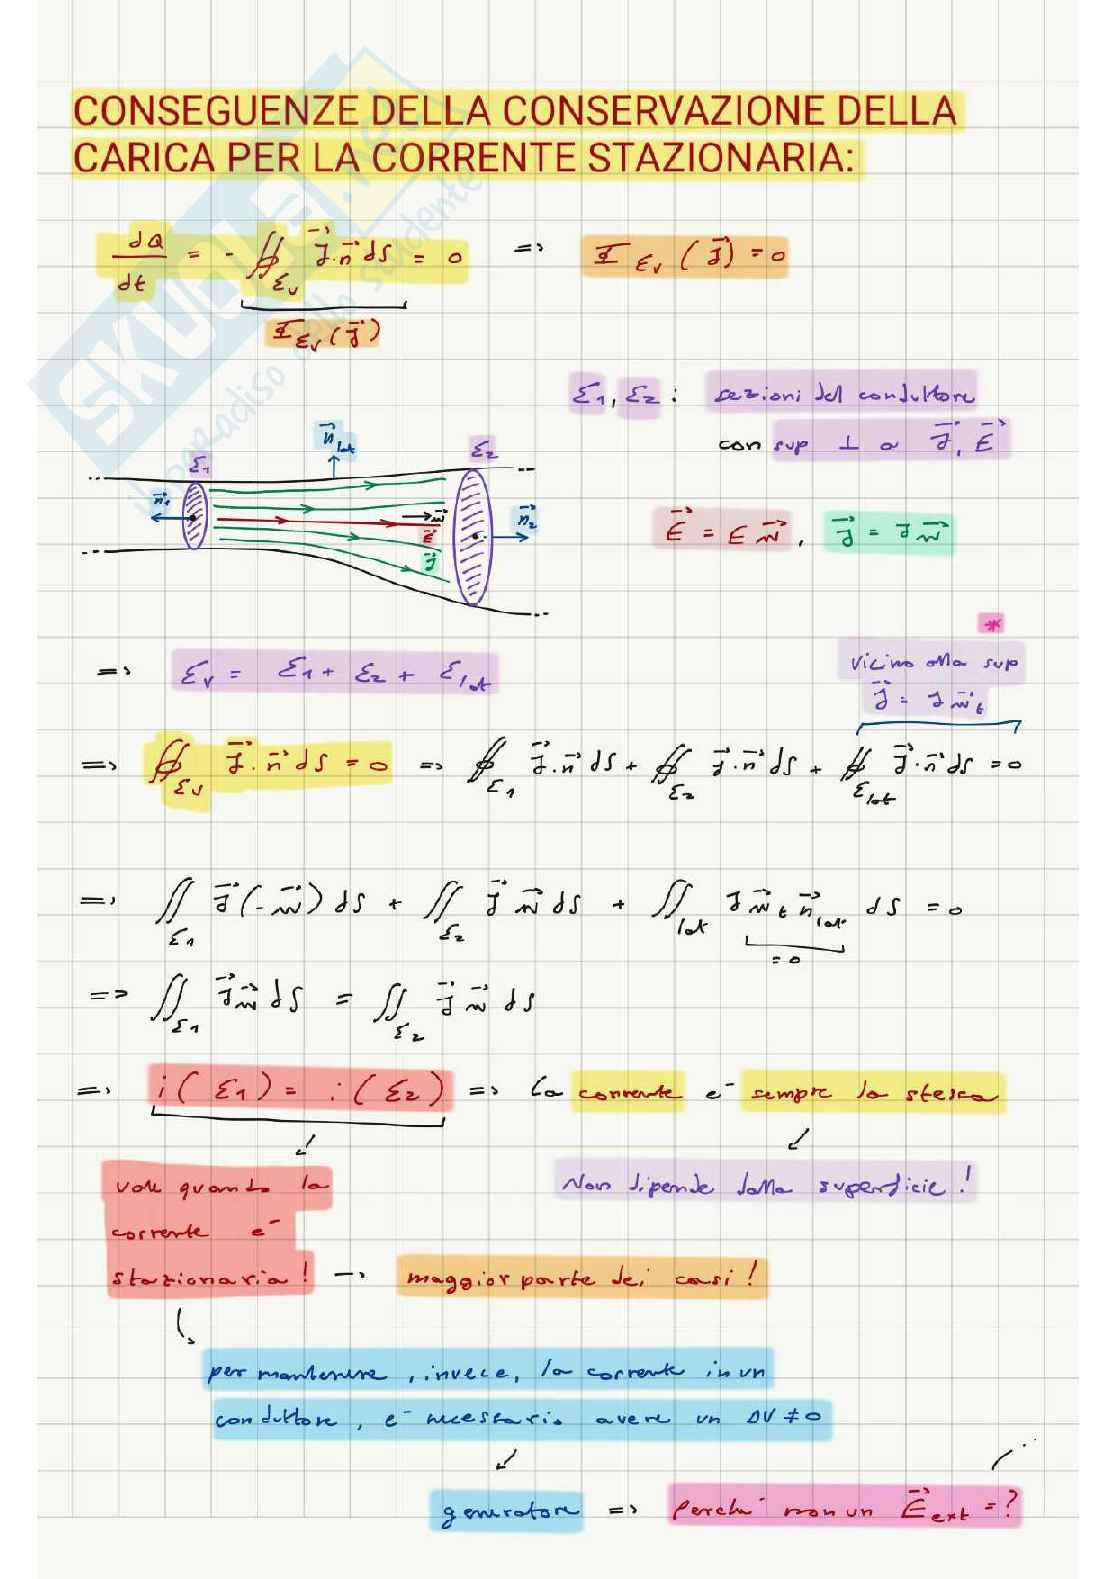 CONSEGUENZE DELLA CONSERVAZIONE DELLA
CARICA PER LA CORRENTE STAZIONARIA:
dQ/dt = - ∯_Σv J⃗·n⃗ dS = 0 => Φ_Σv (J⃗) = 0
Φ_Σv (J⃗)
Σ1, Σ2 : sezioni del conduttore
con sup ⊥ a J⃗, E⃗
n⃗_lat
Σ1
Σ2
n⃗1
n⃗2
w⃗
E⃗
J⃗
E⃗ = E w⃗, J⃗ = J w⃗
*
=> Σv = Σ1 + Σ2 + Σlat
vicino alla sup
J⃗ = J w⃗t
=> ∯_Σv J⃗·n⃗ dS = 0 => ∯_Σ1 J⃗·n⃗ dS + ∯_Σ2 J⃗·n⃗ dS + ∯_Σlat J⃗·n⃗ dS = 0
=> ∬_Σ1 J⃗(-w⃗) dS + ∬_Σ2 J⃗ w⃗ dS + ∬_lat J w⃗t n⃗lat dS = 0
= 0
=> ∬_Σ1 J⃗ w⃗ dS = ∬_Σ2 J⃗ w⃗ dS
=> i(Σ1) = i(Σ2) => la corrente è sempre la stessa
vale quando la
corrente è
stazionaria! -> maggior parte dei casi!
Non dipende dalla superficie!
per mantenere, invece, la corrente in un
conduttore, è necessario avere un ΔV ≠ 0
generatore => perché non un E⃗ext = ?
SKUOLA.net
il paradiso dello studente